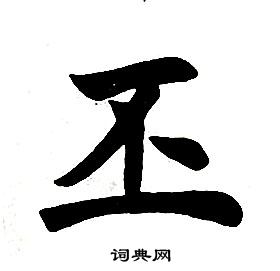 丕
词典网